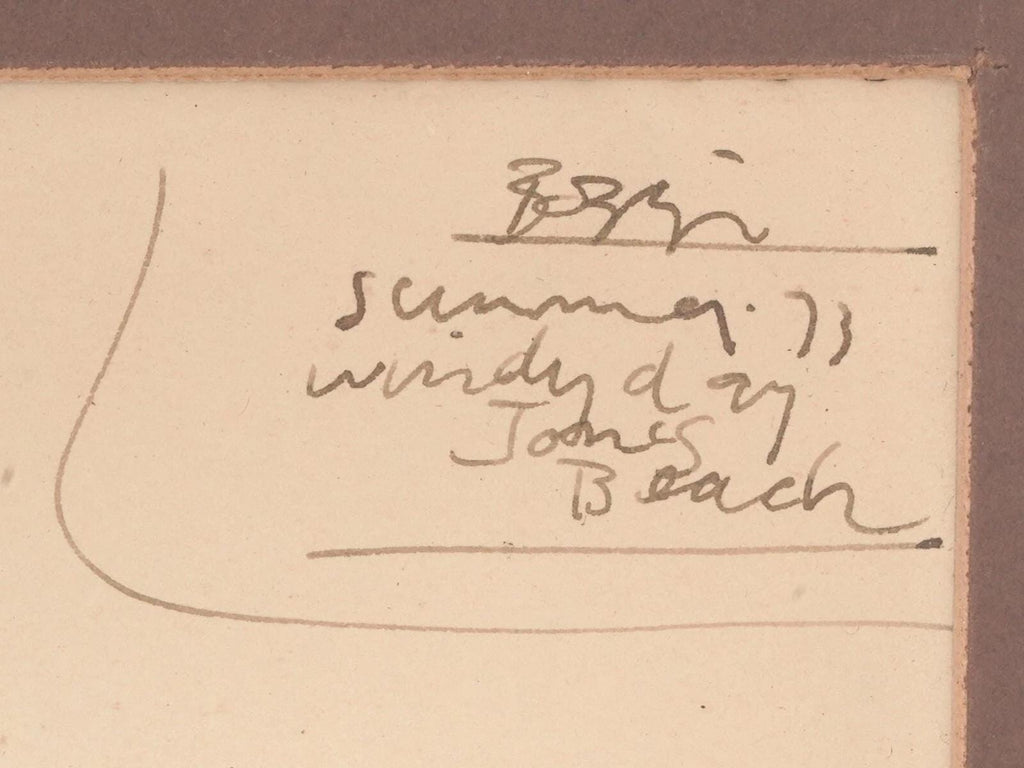 summer. 73
windy day
Jones
Beach